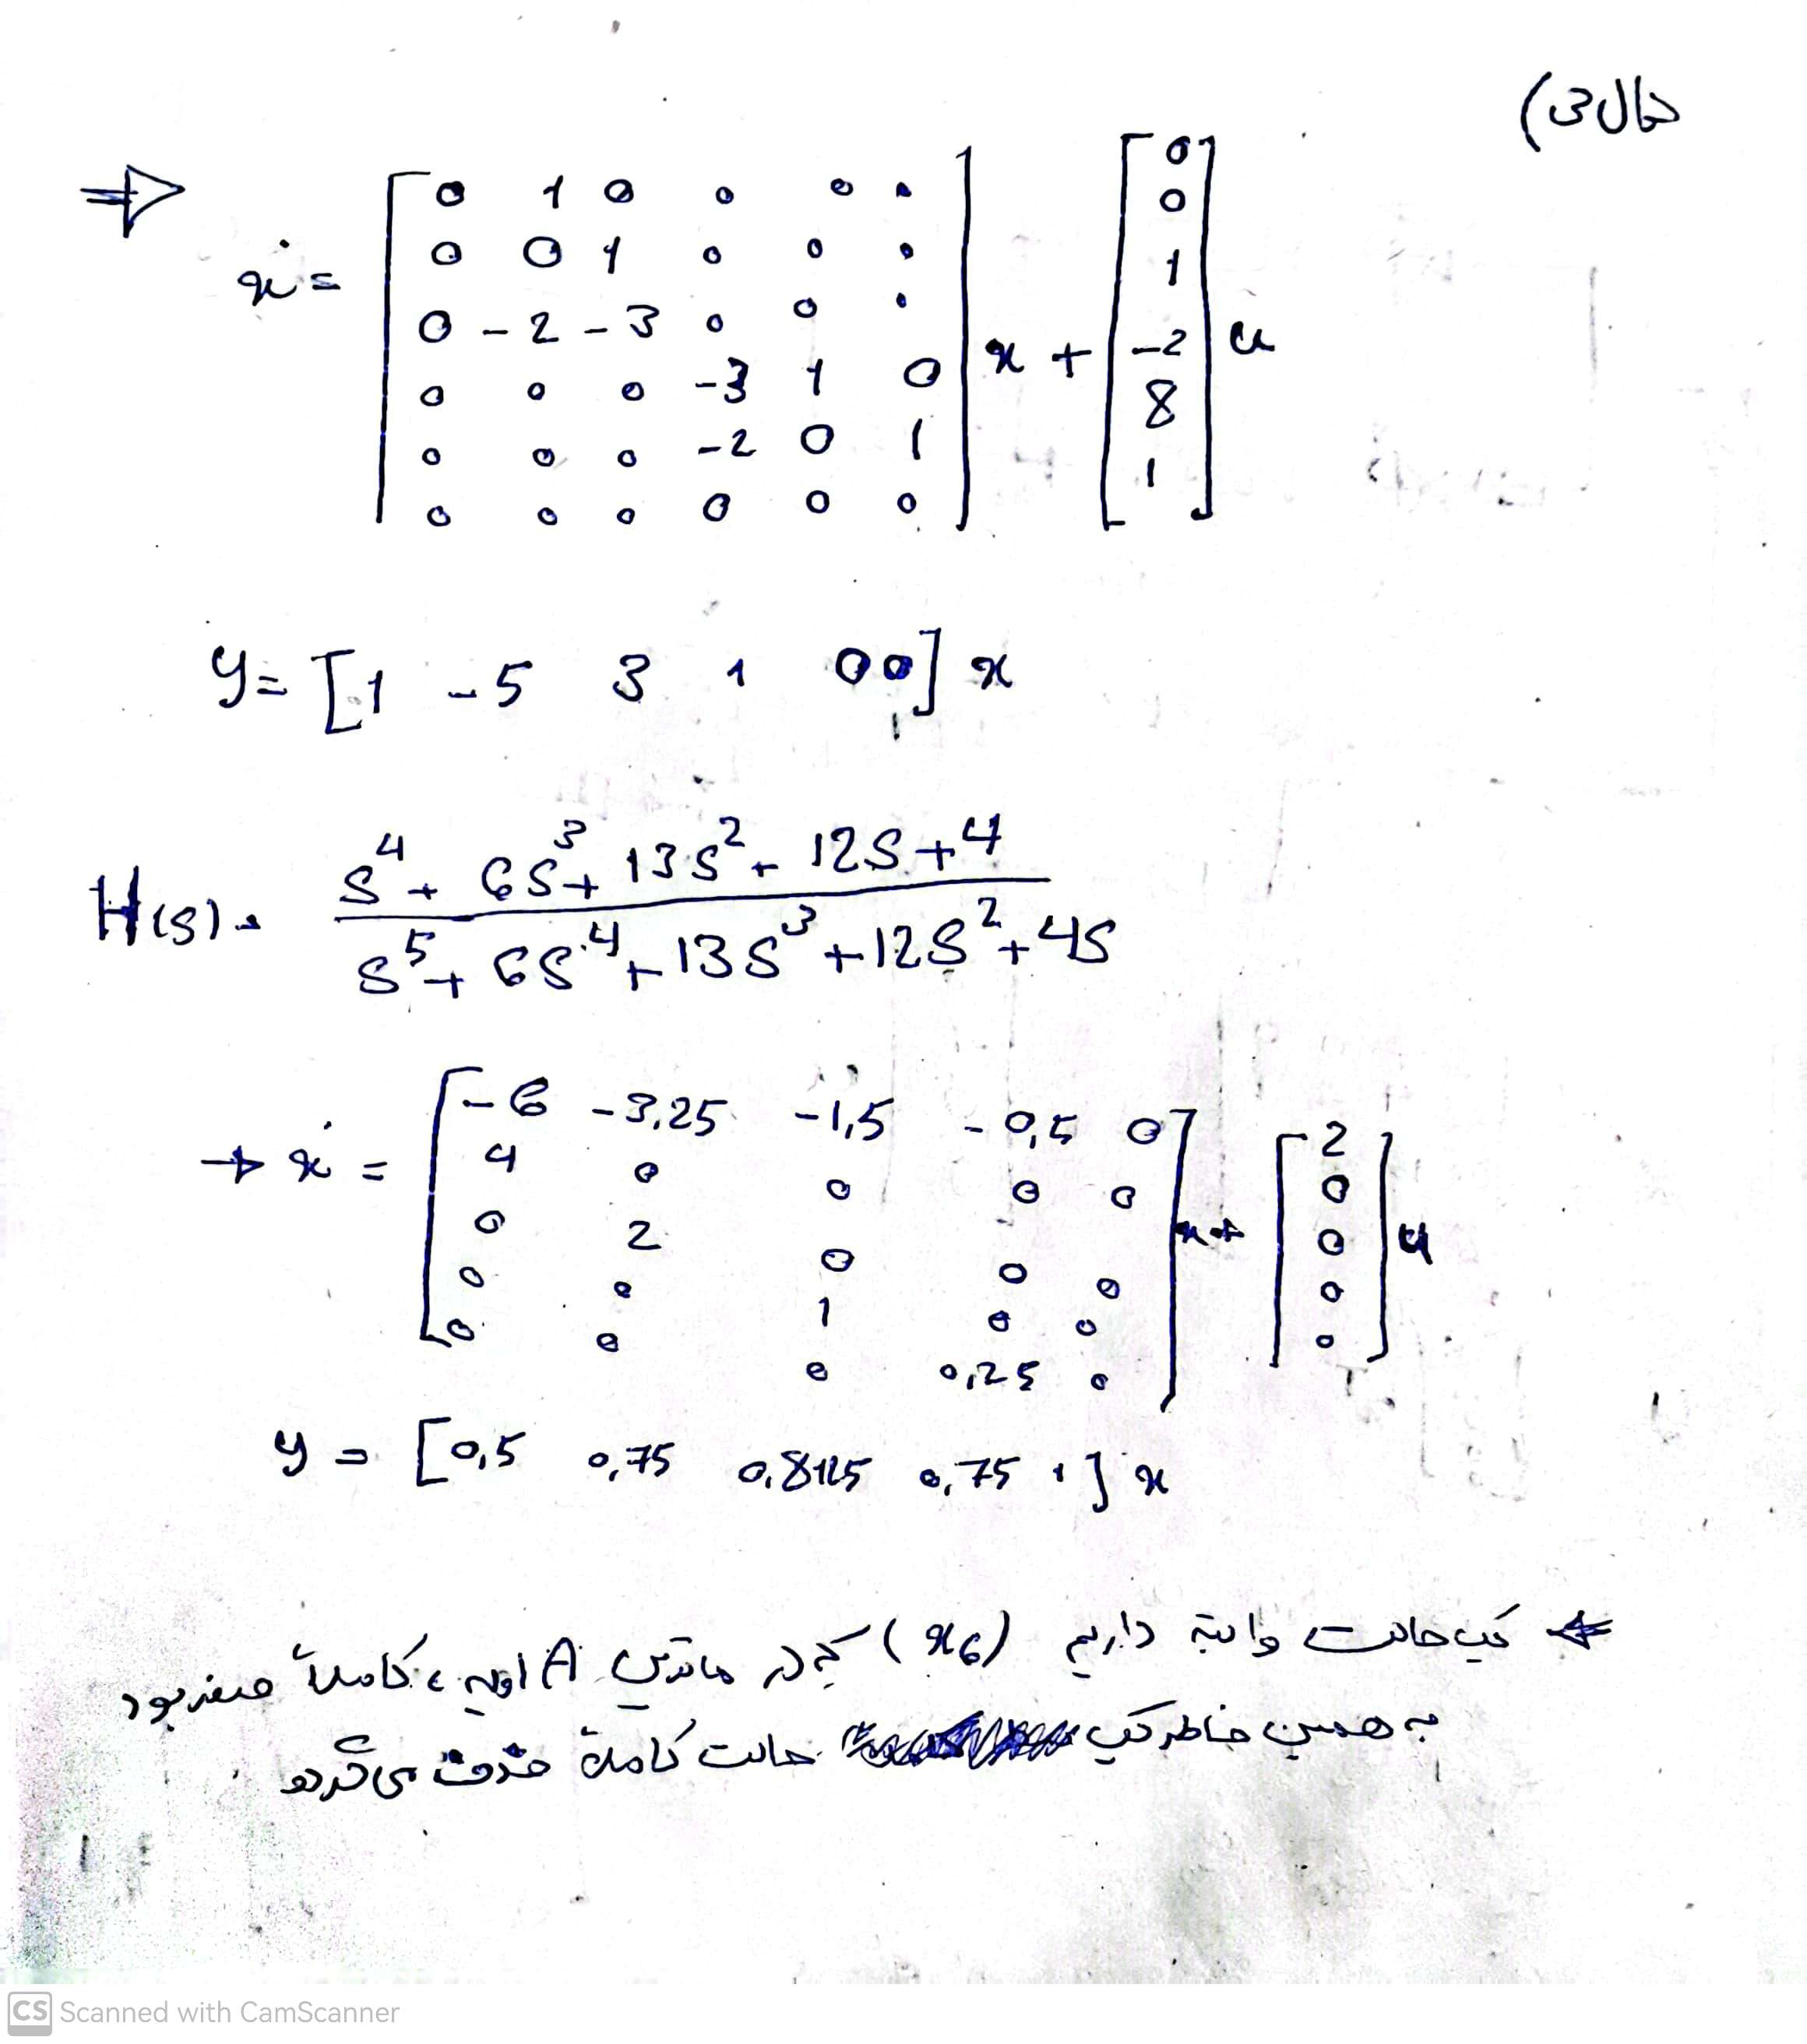 مثال 3)
⇒ ẋ = [0 1 0 0 0 0; 0 0 1 0 0 0; 0 -2 -3 0 0 0; 0 0 0 -3 1 0; 0 0 0 -2 0 1; 0 0 0 0 0 0] x + [0; 0; 1; -2; 8; 1] u
y = [1 -5 3 1 0 0] x
H(s) = (s⁴ + 6s³ + 13s² + 12s + 4) / (s⁵ + 6s⁴ + 13s³ + 12s² + 4s)
→ ẋ = [-6 -3,25 -1,5 -0,5 0; 4 0 0 0 0; 0 2 0 0 0; 0 0 1 0 0; 0 0 0 0,25 0] x + [2; 0; 0; 0; 0] u
y = [0,5 0,75 0,8125 0,75 1] x
← یک حالت وابسته داریم (x6) که در ماتریس A اولیه، کاملاً صفر بود
به همین خاطر یک حالت کاملاً حذف می گردد
CS Scanned with CamScanner